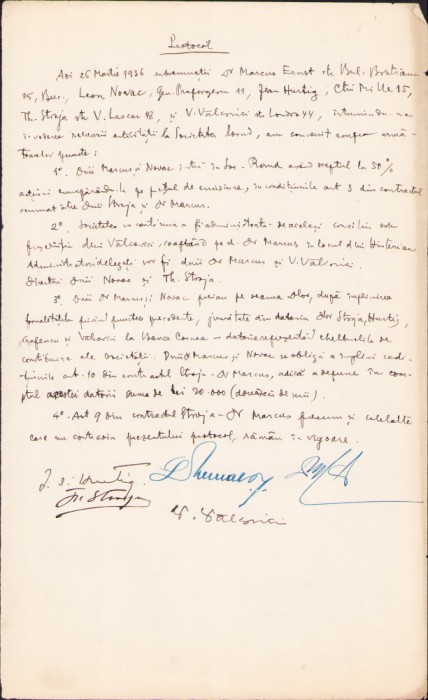 Protocol
Azi 26 Martie 1936 subsemnații Dr Marcus Ernst str. Bul. Brătianu
25, Buc., Leon Novac, Gen. Praporgescu 11, Jean Hurtig, C. Mille 15,
Th. Stroja str V. Lascar 18, și V. Vâlcovici str Londra 44, întrunindu-ne
în vederea reluării activității la Societatea, am convenit asupra urmă-
toarelor puncte:
1º. Dnii Marcus și Novac intră în Soc. având dreptul la 50%
acțiuni cumpărându-le pe prețul de emisiune, în condițiunile art 3 din contractul
semnat între Dnii Stroja și Dr Marcus.
2º. Societatea va continua a fi administrată de același consiliu sub
președinția dlui Vâlcovici, cooptând pe d. Dr Marcus în locul dlui
Administratori delegați vor fi dnii Dr Marcus și V. Vâlcovici.
Directori Dnii Novac și Th. Stroja.
3º. Dnii Dr Marcus și Novac preiau pe seama Dlor, după împlinirea
formalităților punctelor precedente, jumătate din datoria Dlor Stroja, Hurtig,
și Vâlcovici la Banca – datorie reprezentând cheltuelile de
constituire ale societății. Dnii Marcus și Novac se obligă a împlini condi-
țiunile art. 10 din contractul Stroja - Dr Marcus, adică a depune în con-
tul acestei datorii suma de Lei 20.000 (douăzeci de mii).
4º. Art 9 din contractul Stroja - Dr Marcus precum și celelalte
care nu contrazic prezentului protocol, rămân în vigoare.
J. Hurtig
Th. Stroja
V. Vâlcovici